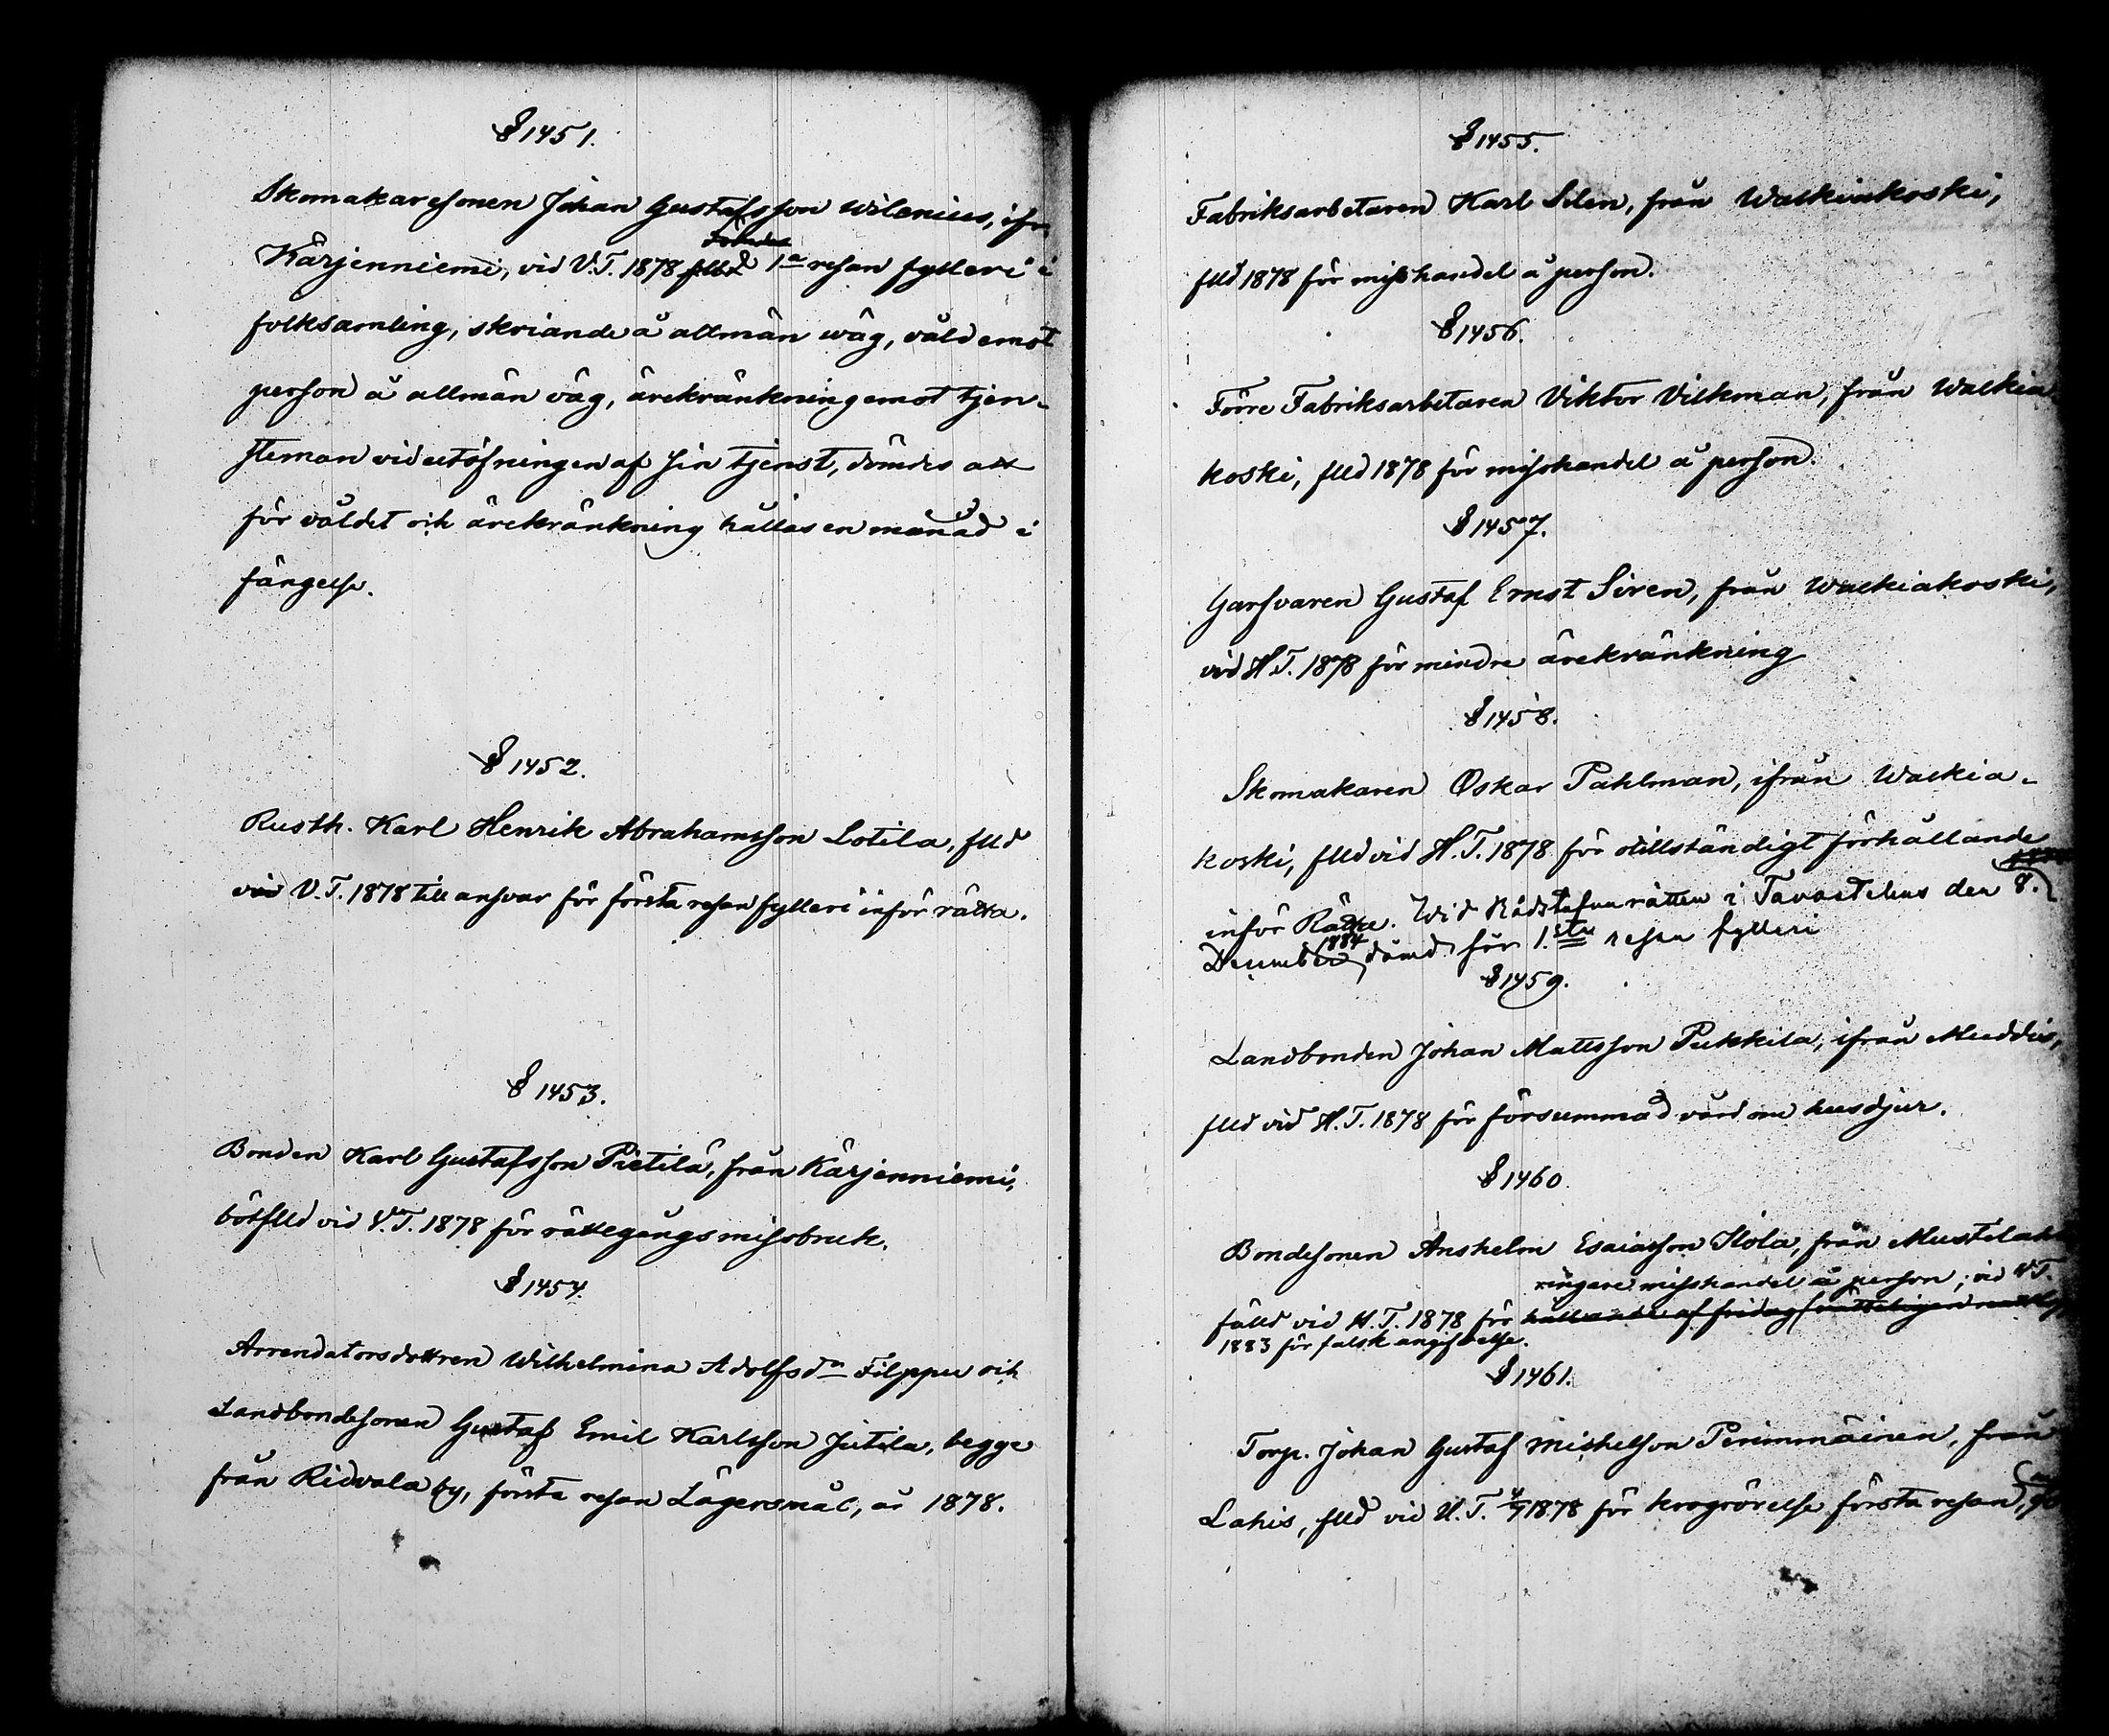 § 1451.
Skomakaresonen Johan Gustafsson Wilenius, ifr.
Kärjenniemi, vid V.T. 1878 flld 1a resan fylleri i
folksamling, skriande å allmän wäg, våld emot
person å allmän väg, ärekränkning emot tjen-
steman vid utöfningen af sin tjenst, dömdes att
för våldet och ärekränkning hållas en månad i
fängelse.
§ 1452.
Rusth. Karl Henrik Abrahamsson Lotila, flld
vid V.T. 1878 till ansvar för första resan fylleri inför rätta.
§ 1453.
Bonden Karl Gustafsson Pietilä, från Kärjenniemi,
bötflld vid V.T. 1878 för rättegångsmissbruk.
§ 1454.
Arrendatorsdottren Wilhelmina Adolfsda Filppu och
Landbondesonen Gustaf Emil Karlsson Jutila, begge
från Ridvala by, första resan Lägersmål, år 1878.
§ 1455.
Fabriksarbetaren Karl Silen, från Walkiakoski,
flld 1878 för misshandel å person.
§ 1456.
Förre Fabriksarbetaren Viktor Vilkman, från Walkia
koski, flld 1878 för misshandel å person.
§ 1457.
Garfvaren Gustaf Ernst Siren, från Walkiakoski,
vid H.T. 1878 för mindre ärekränkning
§ 1458.
Skomakaren Oskar Pahlman, ifrån Walkia-
koski, flld vid H.T. 1878 för otillständigt förhållande
inför Rätta. Wid Rådstufvurätten i Tavastehus den 8.
1884
December dömd för 1.sta resan fylleri
§ 1459.
Landbonden Johan Mattsson Pukkila, ifrån Muddis,
flld vid H.T. 1878 för försummad vård om husdjur.
§ 1460.
Bondesonen Anshelm Esaiasson Ilola, från Mustilaht
ringare misshandel å person; vid VT.
fälld vid H.T. 1878 för hållande af fridag
1883 för falsk angifvelse.
§ 1461.
Torp. Johan Gustaf Michelsson Perimmäinen, från
Lahis, flld vid U.T. 1878 för krogrörelse första resan,